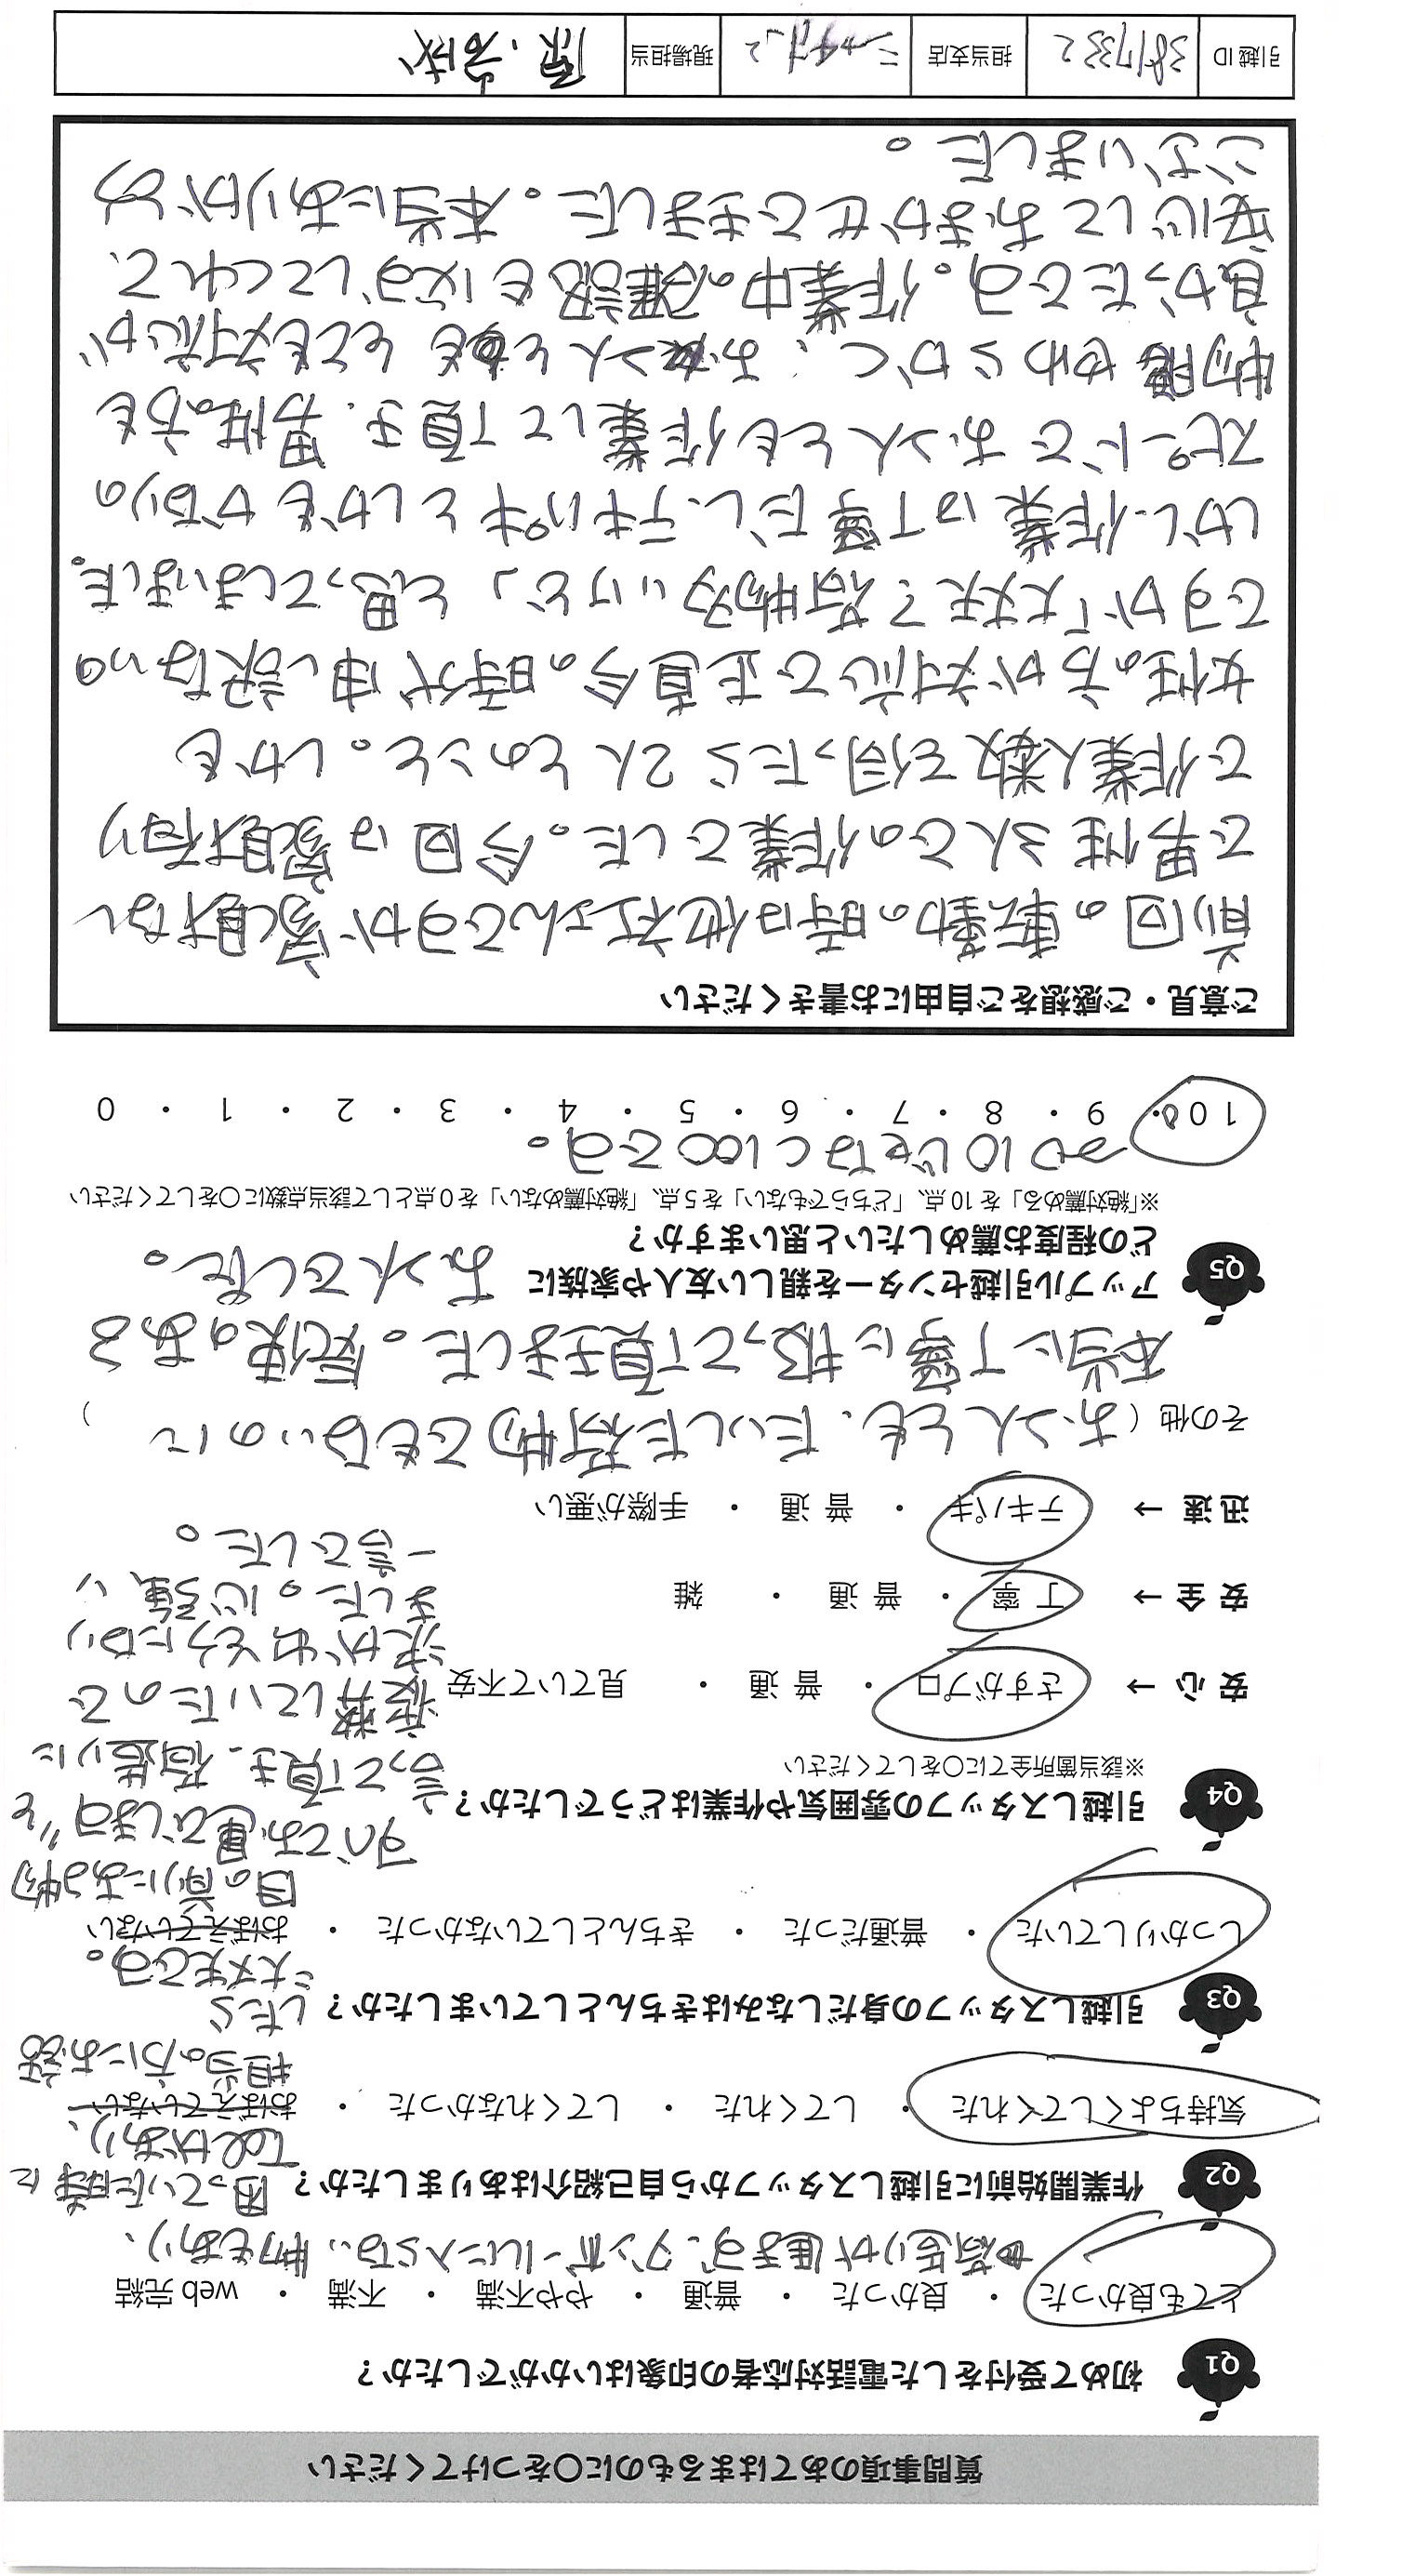 質問事項のあてはまるものに○をつけてください
Q1 初めて受付をした電話対応者の印象はいかがでしたか?
とても良かった ・ 良かった ・ 普通 ・ やや不満 ・ 不満 ・ web完結
荷造りが進まず、ダンボールに入らない物もあり、
困っていた時に
Telがあり、
担当の方にお話
したら
大丈夫です。
目の前にある物
すべてお運びします"と
言って頂き、荷造りに
疲弊していたので
涙が出そうになり
ました。心強い
一言でした。
Q2 作業開始前に引越しスタッフから自己紹介はありましたか?
気持ちよくしてくれた ・ してくれた ・ してくれなかった ・ おぼえていない
Q3 引越しスタッフの身だしなみはきちんとしていましたか?
しっかりしていた ・ 普通だった ・ きちんとしていなかった ・ おぼえていない
Q4 引越しスタッフの雰囲気や作業はどうでしたか?
※該当箇所全てに○をしてください
安 心 → さすがプロ ・ 普 通 ・ 見ていて不安
安 全 → 丁 寧 ・ 普 通 ・ 雑
迅 速 → テキパキ ・ 普 通 ・ 手際が悪い
その他 ( お二人とも、たいした荷物でもないのに )
本当に丁寧に扱って頂きました。愛情のある
お二人でした。
Q5 アップル引越センターを親しい友人や家族に
どの程度お薦めしたいと思いますか?
※「絶対薦める」を10点、「どちらでもない」を5点、「絶対薦めない」を0点として該当点数に○をしてください
→ 10じゃなく100です。
100 ・ 9 ・ 8 ・ 7 ・ 6 ・ 5 ・ 4 ・ 3 ・ 2 ・ 1 ・ 0
ご意見・ご感想をご自由にお書きください
前回の転勤の時は他社さんですが家財なし
で男性3人での作業でした。今回は家財有り
で作業人数を伺ったら2人とのこと。しかも
女性の方が対応で正直今の時代申し訳ないの
ですが「大丈夫?荷物多いけど」と思ってしまいました。
しかし、作業は丁寧だし、テキパキとしかもかなりの
スピードでお二人とも作業して頂き、男性の方も
物腰やわらかく、お二人ともとても対応が
良かったです。作業中の雑談も必ずしてくれて、
安心しておまかせできました。本当にありがとう
ございました。
引越ID 3817332 担当支店 現場担当 原、岩成